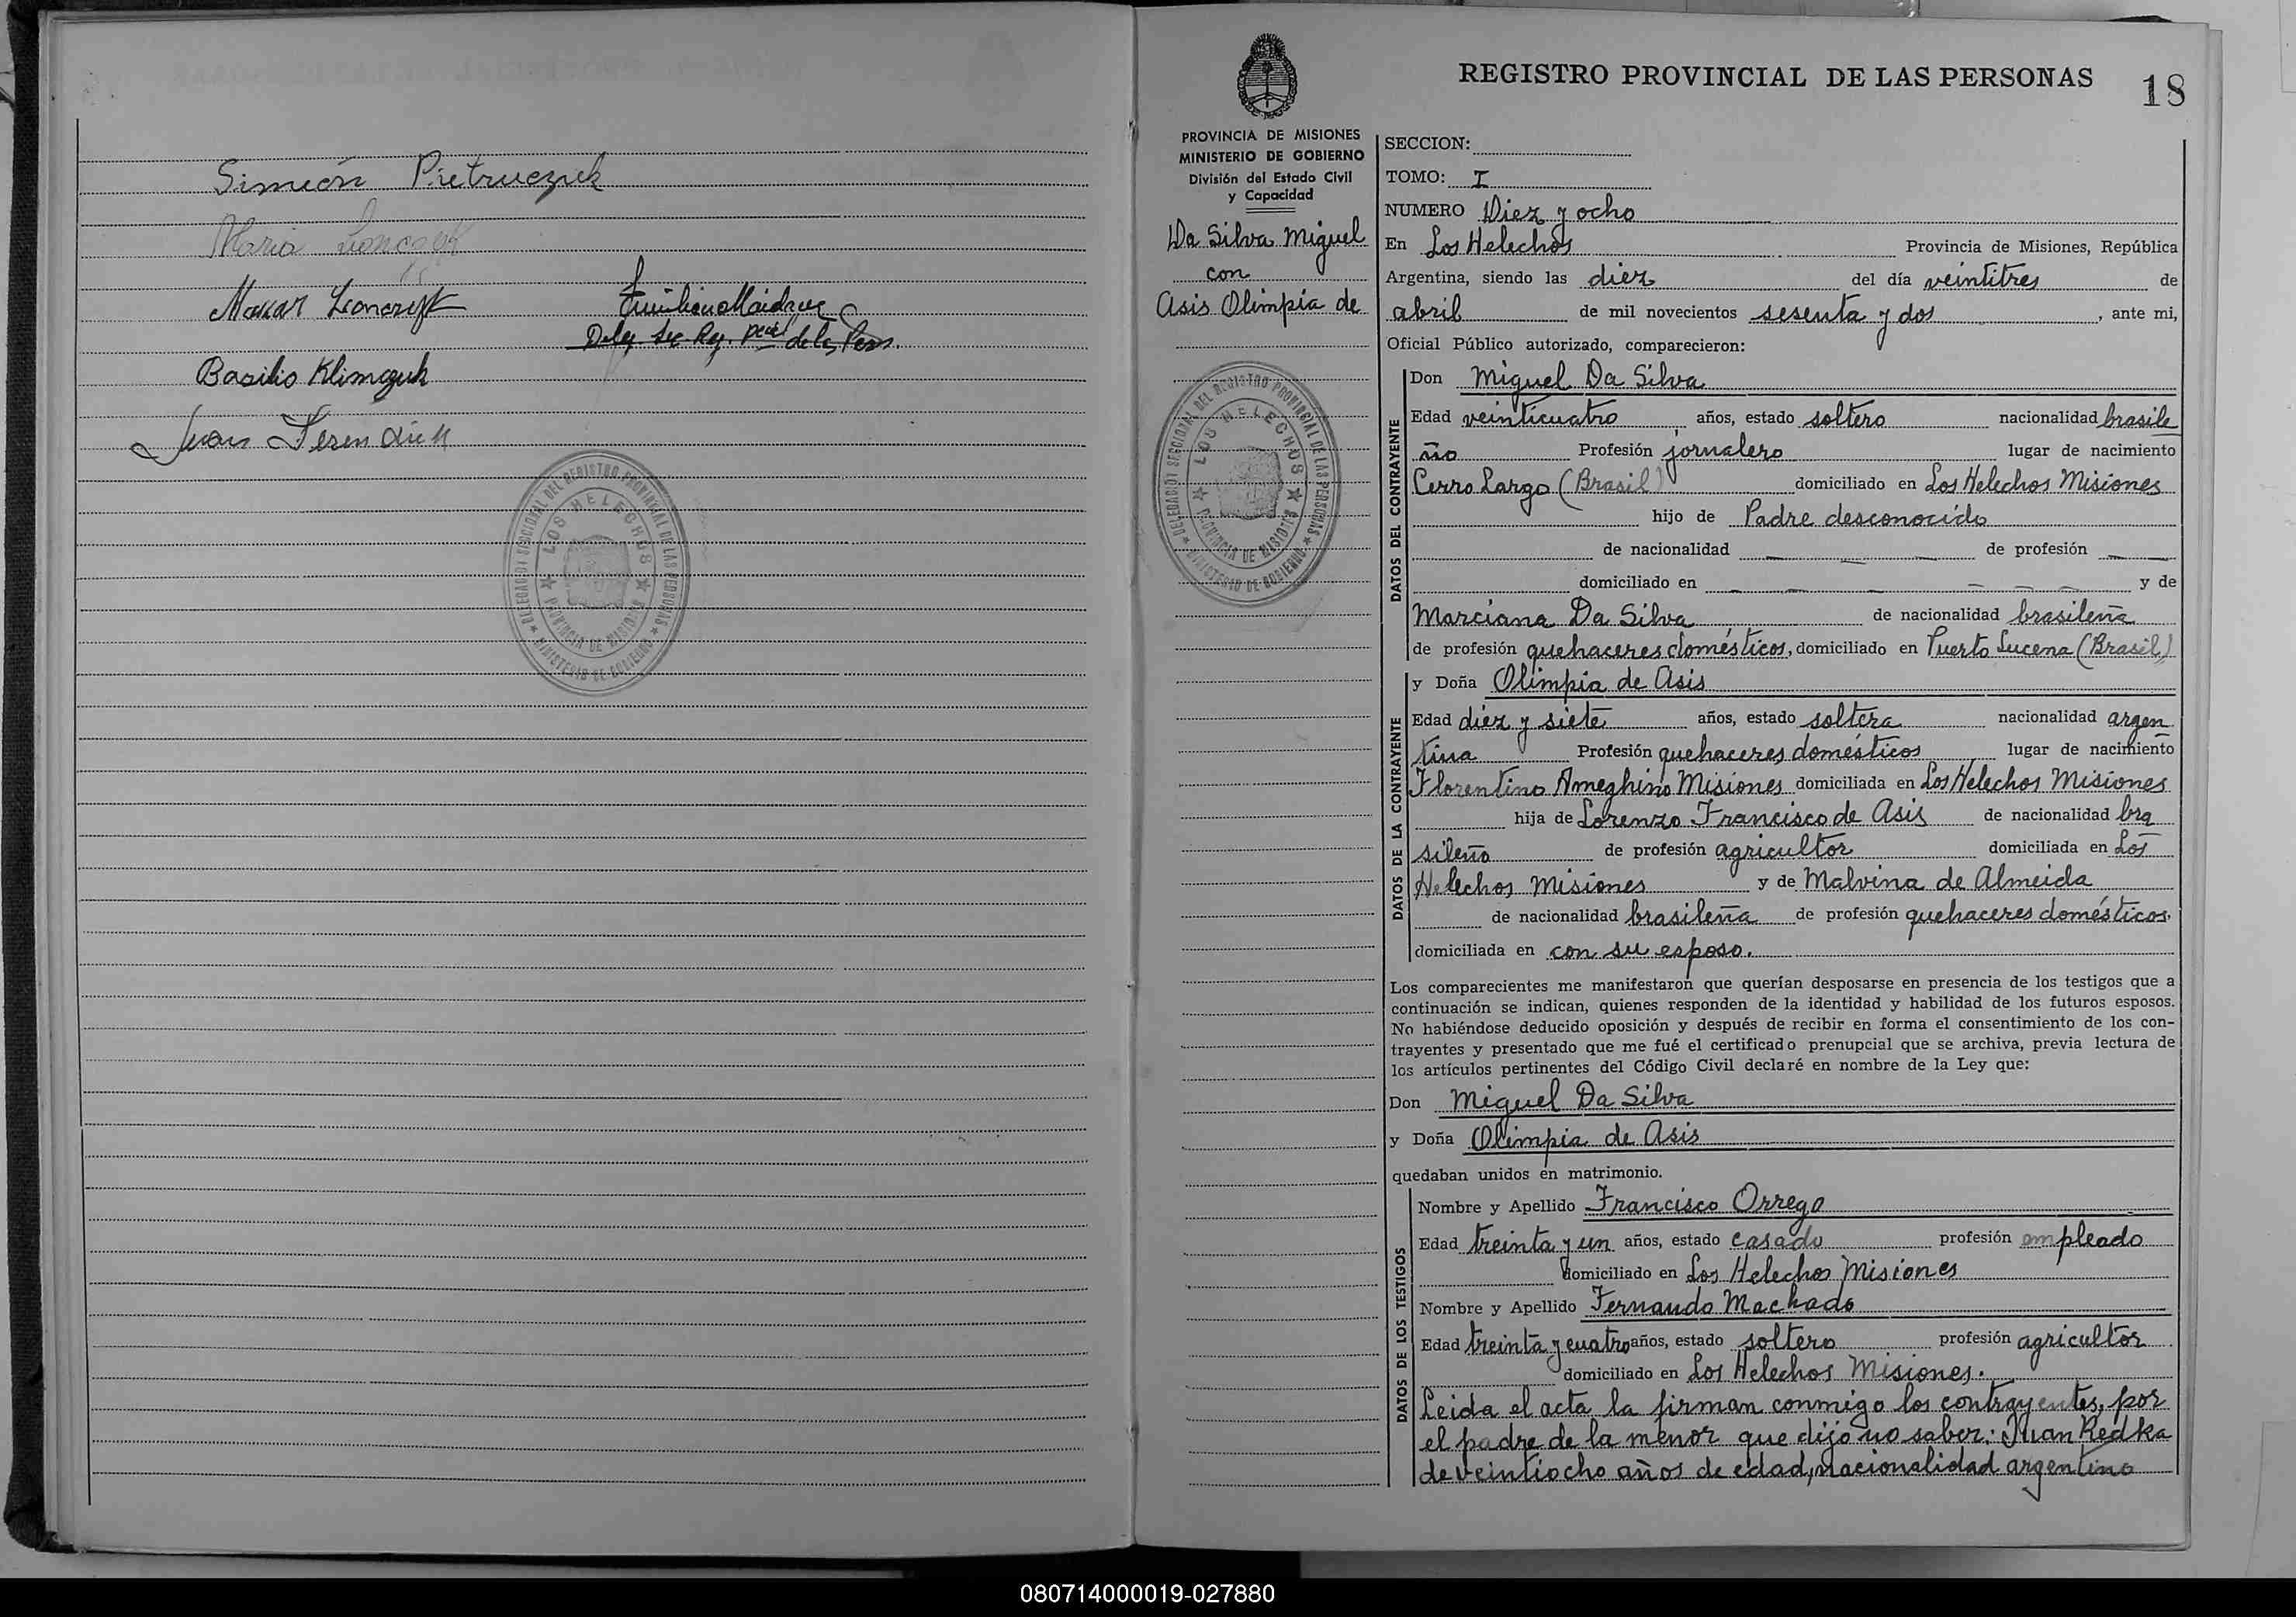 Simeón Pietruczuk
Maria
Basilio Klimczuk
Deleg. Sec. Reg. Pcial de las Pers.
Juan
DELEGACION SECCIONAL DEL REGISTRO PROVINCIAL DE LAS PERSONAS
LOS HELECHOS
PROVINCIA DE MISIONES
MINISTERIO DE GOBIERNO
REGISTRO PROVINCIAL DE LAS PERSONAS
18
PROVINCIA DE MISIONES
MINISTERIO DE GOBIERNO
División del Estado Civil
y Capacidad
Da Silva Miguel
con
Asis Olimpia de
DELEGACION SECCIONAL DEL REGISTRO PROVINCIAL DE LAS PERSONAS
LOS HELECHOS
PROVINCIA DE MISIONES
MINISTERIO DE GOBIERNO
SECCION:
TOMO: I
NUMERO Diez y ocho
En Los Helechos Provincia de Misiones, República
Argentina, siendo las diez del día veintitres de
abril de mil novecientos sesenta y dos, ante mi,
Oficial Público autorizado, comparecieron:
DATOS DEL CONTRAYENTE
Don Miguel Da Silva
Edad veinticuatro años, estado soltero nacionalidad brasile
ño Profesión jornalero lugar de nacimiento
Cerro Largo (Brasil) domiciliado en Los Helechos Misiones
hijo de Padre desconocido
de nacionalidad — de profesión —
domiciliado en — — — — y de
Marciana Da Silva de nacionalidad brasileña
de profesión quehaceres domésticos, domiciliado en Puerto Lucena (Brasil)
DATOS DE LA CONTRAYENTE
y Doña Olimpia de Asis
Edad diez y siete años, estado soltera nacionalidad argen
tina Profesión quehaceres domésticos lugar de nacimiento
Florentino Ameghino Misiones domiciliada en Los Helechos Misiones
hija de Lorenzo Francisco de Asis de nacionalidad bra
sileño de profesión agricultor domiciliada en Los
Helechos Misiones y de Malvina de Almeida
de nacionalidad brasileña de profesión quehaceres domésticos
domiciliada en con su esposo.
Los comparecientes me manifestaron que querían desposarse en presencia de los testigos que a
continuación se indican, quienes responden de la identidad y habilidad de los futuros esposos.
No habiéndose deducido oposición y después de recibir en forma el consentimiento de los con-
trayentes y presentado que me fué el certificado prenupcial que se archiva, previa lectura de
los artículos pertinentes del Código Civil declaré en nombre de la Ley que:
Don Miguel Da Silva
y Doña Olimpia de Asis
quedaban unidos en matrimonio.
DATOS DE LOS TESTIGOS
Nombre y Apellido Francisco Orrego
Edad treinta y un años, estado casado profesión empleado
domiciliado en Los Helechos Misiones
Nombre y Apellido Fernando Machado
Edad treinta y cuatro años, estado soltero profesión agricultor
domiciliado en Los Helechos Misiones.
Leida el acta la firman conmigo los contrayentes, por
el padre de la menor que dijo no saber: Juan Redka
de veintiocho años de edad, nacionalidad argentino
080714000019-027880